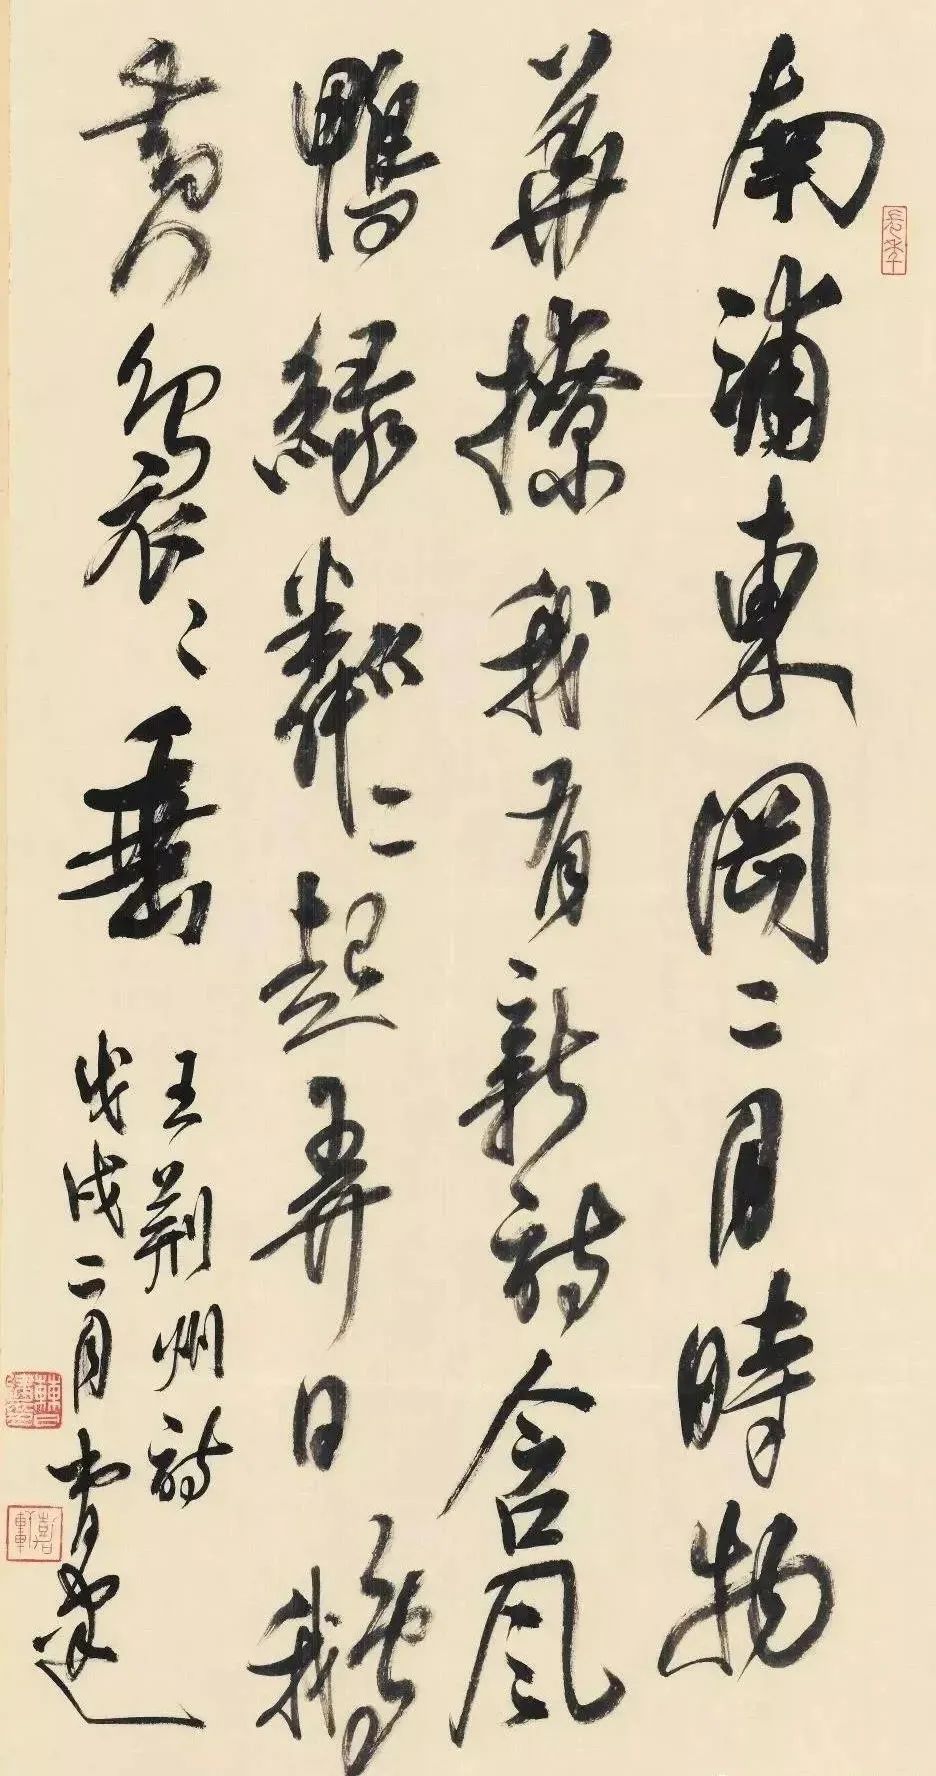 南浦東岡二月時物
華撩我有新詩含風
鴨綠粼二起弄日鵝
黄裊二垂
王荊州詩
戊戌二月
長年